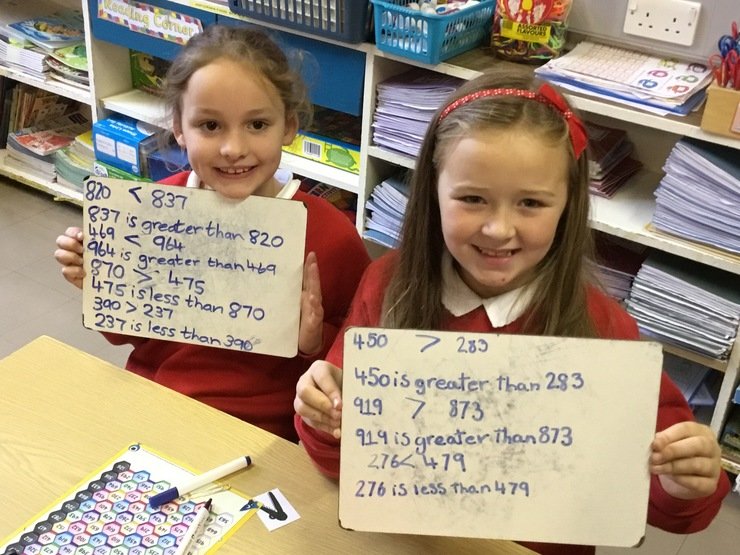 Reading Corner
ASSORTED
FLAVOURS
820 < 837
837 is greater than 820
469 < 964
964 is greater than 469
870 > 475
475 is less than 870
390 > 237
237 is less than 390
450 > 283
450 is greater than 283
919 > 873
919 is greater than 873
276 < 479
276 is less than 479